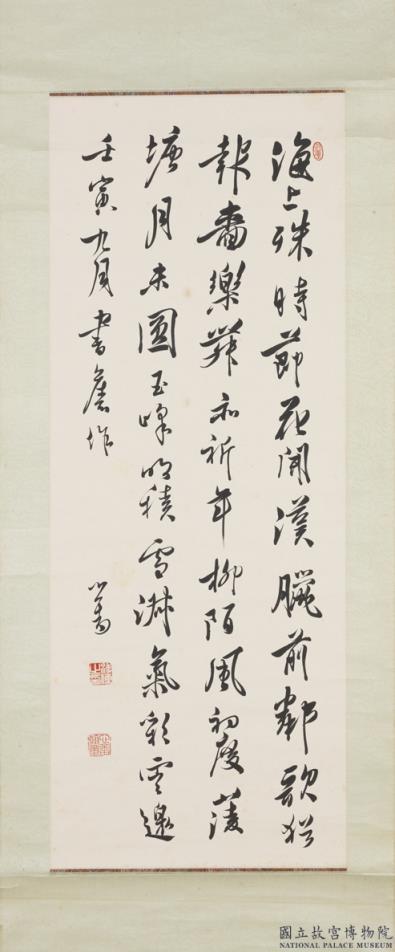 海上殊時節花開漢臘前鄰歌猶
報嗇樂舞亦祈年柳陌風初度菱
塘月未圓玉峰明積雪淑氣彩雲邊
壬寅九月書舊作
心畬
國立故宮博物院
NATIONAL PALACE MUSEUM